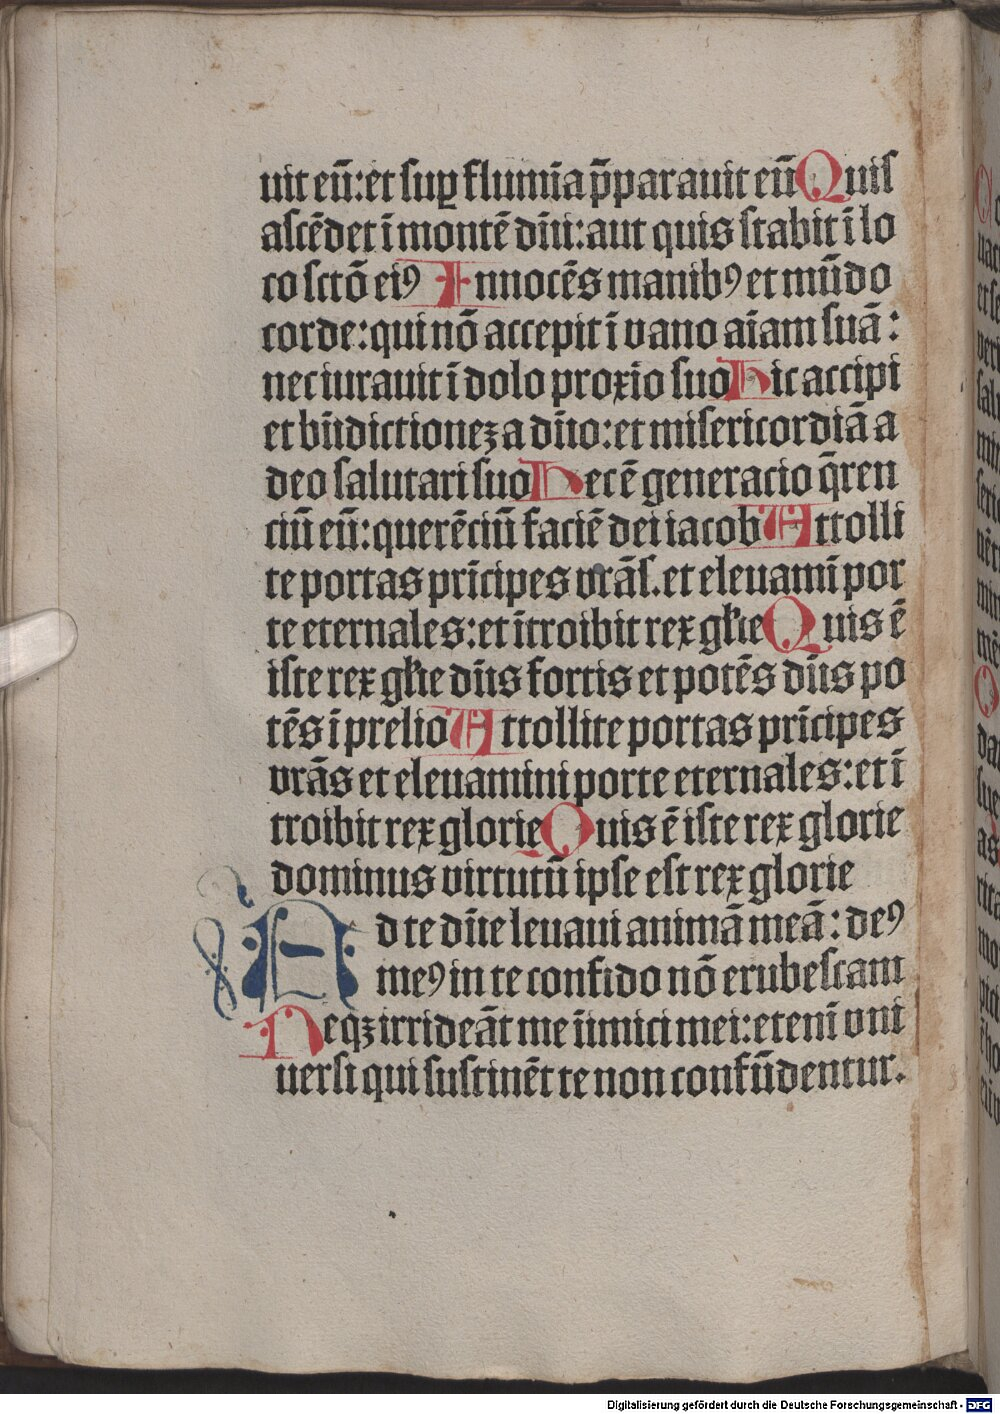 uit eū:et suꝑ flumīa p̄parauit eū Quis
ascēdet ī montē dn̄i:aut quis stabit ī lo
co sctō eiꝰ Innocēs manibꝰ et mūdo
corde:qui nō accepit ī vano aīam suā:
nec iurauit ī dolo proxīo suo Hic accipi
et bn̄dictioneꝫ a dn̄o:et misericordiā a
deo salutari suo Hec ē generacio q̄ren
ciū eū:querēciū faciē dei iacob Attolli
te portas prīcipes vrās.et eleuamī por
te eternales:et ītroibit rex gl̄ie Quis ē
iste rex gl̄ie dn̄s fortis et potēs dn̄s po
tēs ī prelio Attollite portas prīcipes
vrās et eleuamini porte eternales:et ī
troibit rex glorie Quis ē iste rex glorie
dominus virtutū ipse est rex glorie
Ad te dn̄e leuaui animā meā: deꝰ
meꝰ in te confido nō erubescam
Neqꝫ irrideāt me īimici mei:etenī vni
uersi qui sustinēt te non confūdentur.
Digitalisierung gefördert durch die Deutsche Forschungsgemeinschaft - DFG